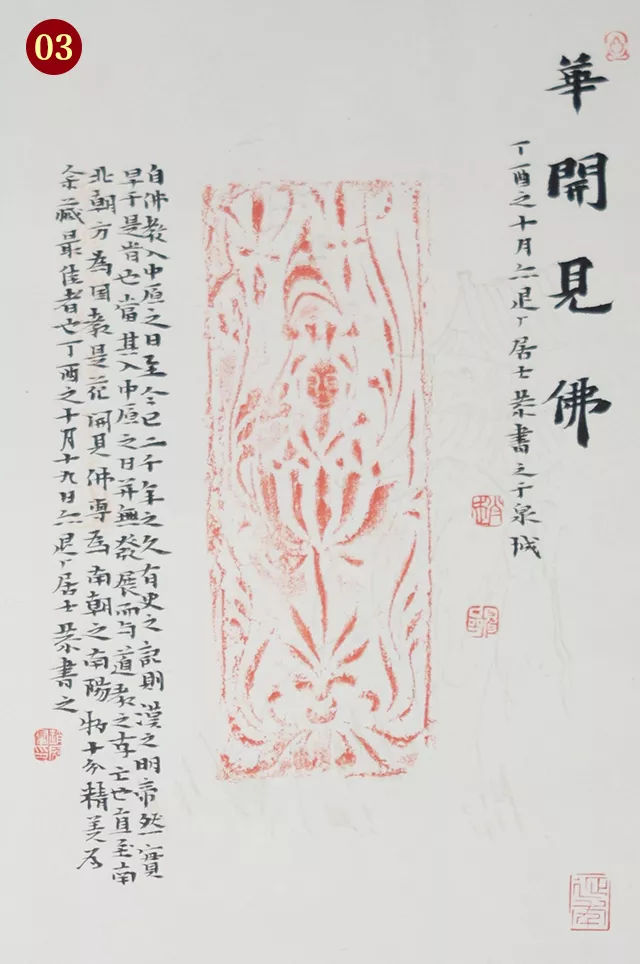 03
華開見佛
丁酉之十月退丁居士恭書之于泉城
自佛教入中原之日至今已二千年之久有史之記則漢之明帝然實
早于是肯也當其入中原之日并無發展而与道教之存亡也直至南
北朝方為国教是花開見佛專為南朝之南陽物十分精美为
余藏最佳者也丁酉之十月十九日退丁居士恭書之